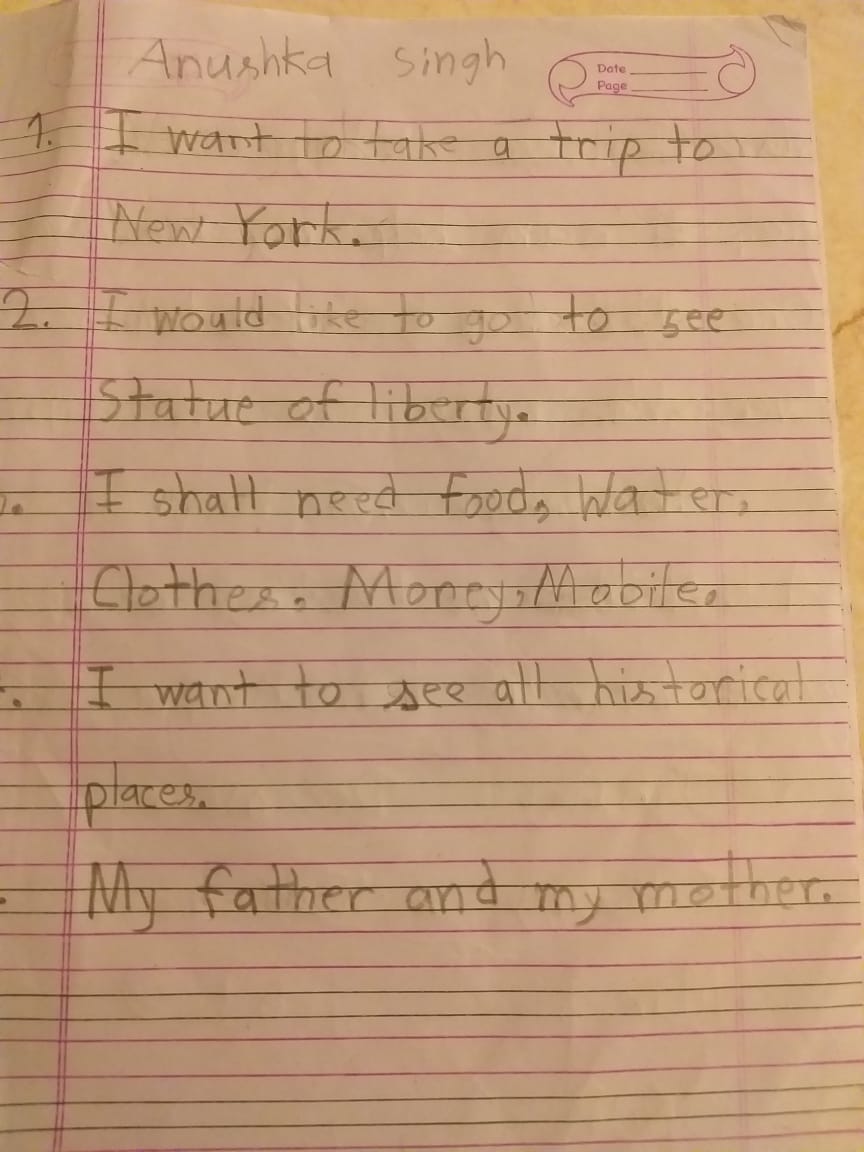 Anushka singh
Date
Page
1. I want to take a trip to
New York.
2. I would like to go to see
Statue of liberty.
. I shall need food, Water,
Clothes. Money, Mobile.
. I want to see all historical
places.
. My father and my mother.